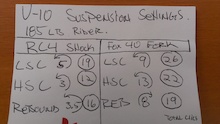 V-10 SUSPENSION SETTINGS.
185 LBS RIDER.
RC4 SHOCK
FOX 40 FORK
LSC 5 19
LSC 9 26
HSC 3 12
HSC 13 22
REBOUND 3.5 16
REB 8 19
TOTAL CLICKS